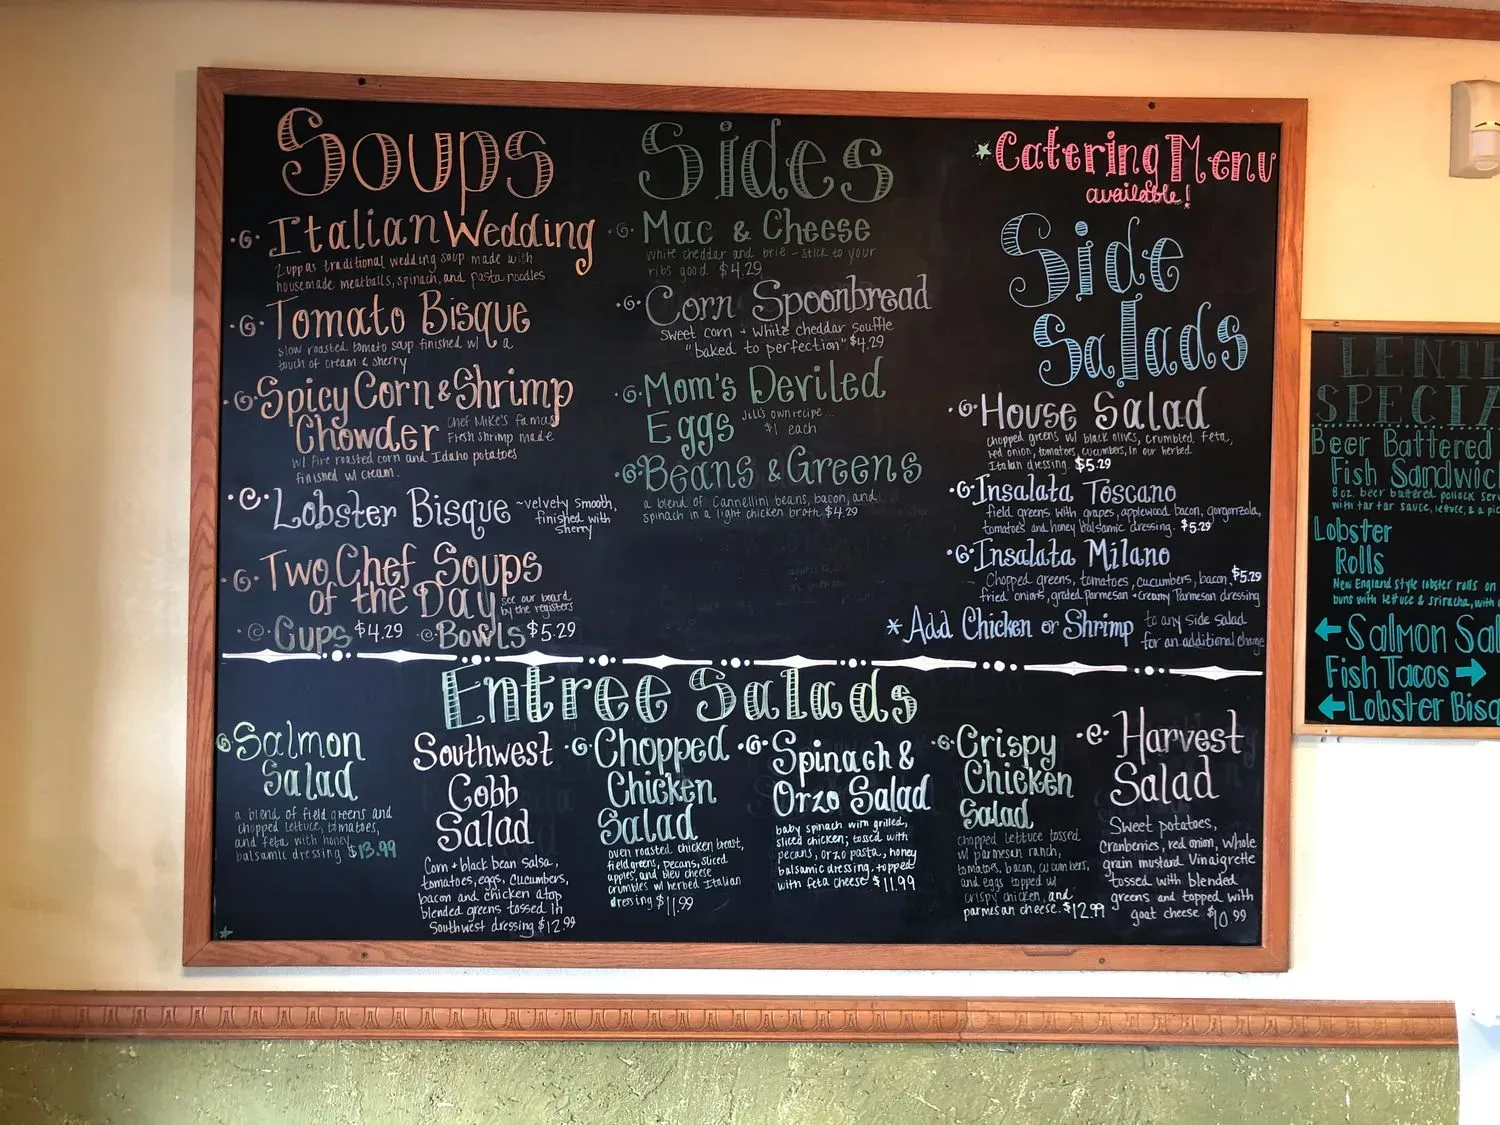 Soups
Italian Wedding
Zuppas traditional wedding soup made with
housemade meatballs, spinach, and pasta noodles
Tomato Bisque
slow roasted tomato soup finished w/ a
touch of cream & sherry
Spicy Corn & Shrimp
Chowder
Chef Mike's famas
Fresh shrimp made
w/ fire roasted corn and Idaho potatoes
finished w/ cream.
Lobster Bisque
~velvety smooth,
finished with
sherry
Two Chef Soups
of the Day
see our board
by the registers
Cups $4.29 Bowls $5.29
Sides
Mac & Cheese
white cheddar and brie - stick to your
ribs good $4.29
Corn Spoonbread
sweet corn + white cheddar souffle
"baked to perfection" $4.29
Mom's Deviled
Eggs
Jill's own recipe...
$1 each
Beans & Greens
a blend of Cannellini beans, bacon, and
spinach in a light chicken broth $4.29
Catering Menu
available!
Side
Salads
House Salad
chopped greens w/ black olives, crumbled feta,
red onion, tomatoes, cucumbers, in our herbed
Italian dressing. $5.29
Insalata Toscano
field greens with grapes, applewood bacon, gorgonzola,
tomatoes and honey balsamic dressing. $5.29
Insalata Milano
Chopped greens, tomatoes, cucumbers, bacon, $5.29
fried onions, grated parmesan + Creamy Parmesan dressing
* Add Chicken or Shrimp
to any side salad
for an additional charge
Entree Salads
Salmon
Salad
a blend of field greens and
chopped lettuce, tomatoes,
and feta with honey
balsamic dressing $13.99
Southwest
Cobb
Salad
Corn + black bean salsa,
tomatoes, eggs, cucumbers,
bacon and chicken atop
blended greens tossed in
Southwest dressing $12.99
Chopped
Chicken
Salad
oven roasted chicken breast,
field greens, pecans, sliced
apples, and bleu cheese
crumbles w/ herbed Italian
dressing $11.99
Spinach &
Orzo Salad
baby spinach with grilled,
sliced chicken; tossed with
pecans, orzo pasta, honey
balsamic dressing, topped
with feta cheese $11.99
Crispy
Chicken
Salad
chopped lettuce tossed
w/ parmesan ranch,
tomatoes, bacon, cucumbers,
and eggs topped w/
crispy chicken, and
parmesan cheese. $12.99
Harvest
Salad
Sweet potatoes,
Cranberries, red onion, whole
grain mustard Vinaigrette
tossed with blended
greens and topped with
goat cheese $10.99
LENT
SPECIA
Beer Battered
Fish Sandwic
8 oz. beer battered pollock ser
with tartar sauce, lettuce, & a pic
Lobster
Rolls
New England style lobster rolls on
buns with lettuce & sriracha, with
Salmon Sal
Fish Tacos
Lobster Bisq